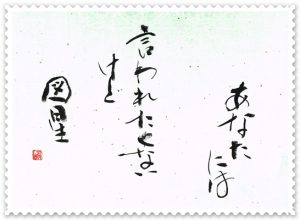 あなた
には
言われたくない
けど
図星